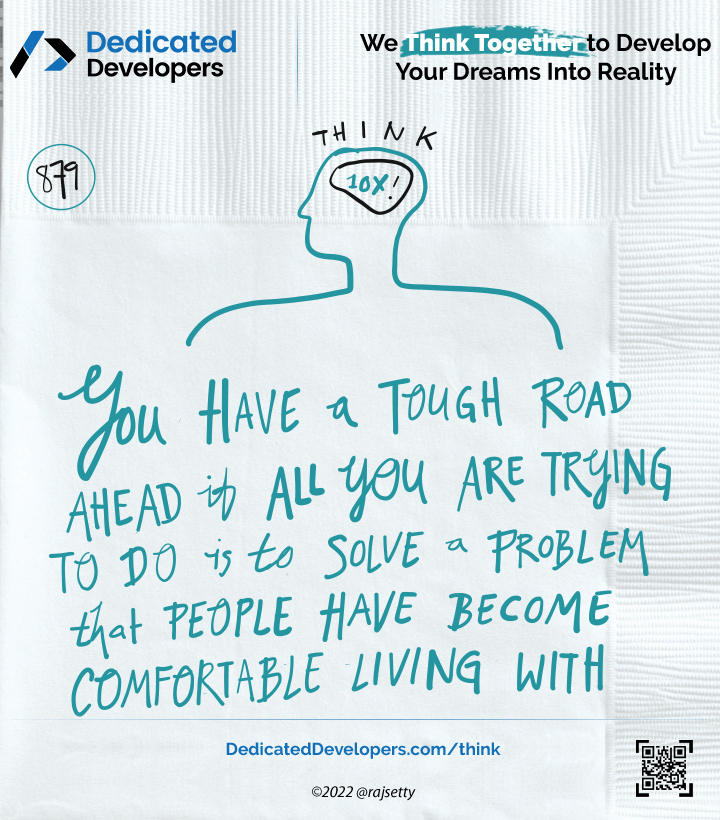 Dedicated
Developers
We Think Together to Develop
Your Dreams Into Reality
THINK
879
10X!
You HAVE a TOUGH ROAD
AHEAD if ALL YOU ARE TRYING
TO DO is to SOLVE a PROBLEM
that PEOPLE HAVE BECOME
COMFORTABLE LIVING WITH
DedicatedDevelopers.com/think
©2022 @rajsetty